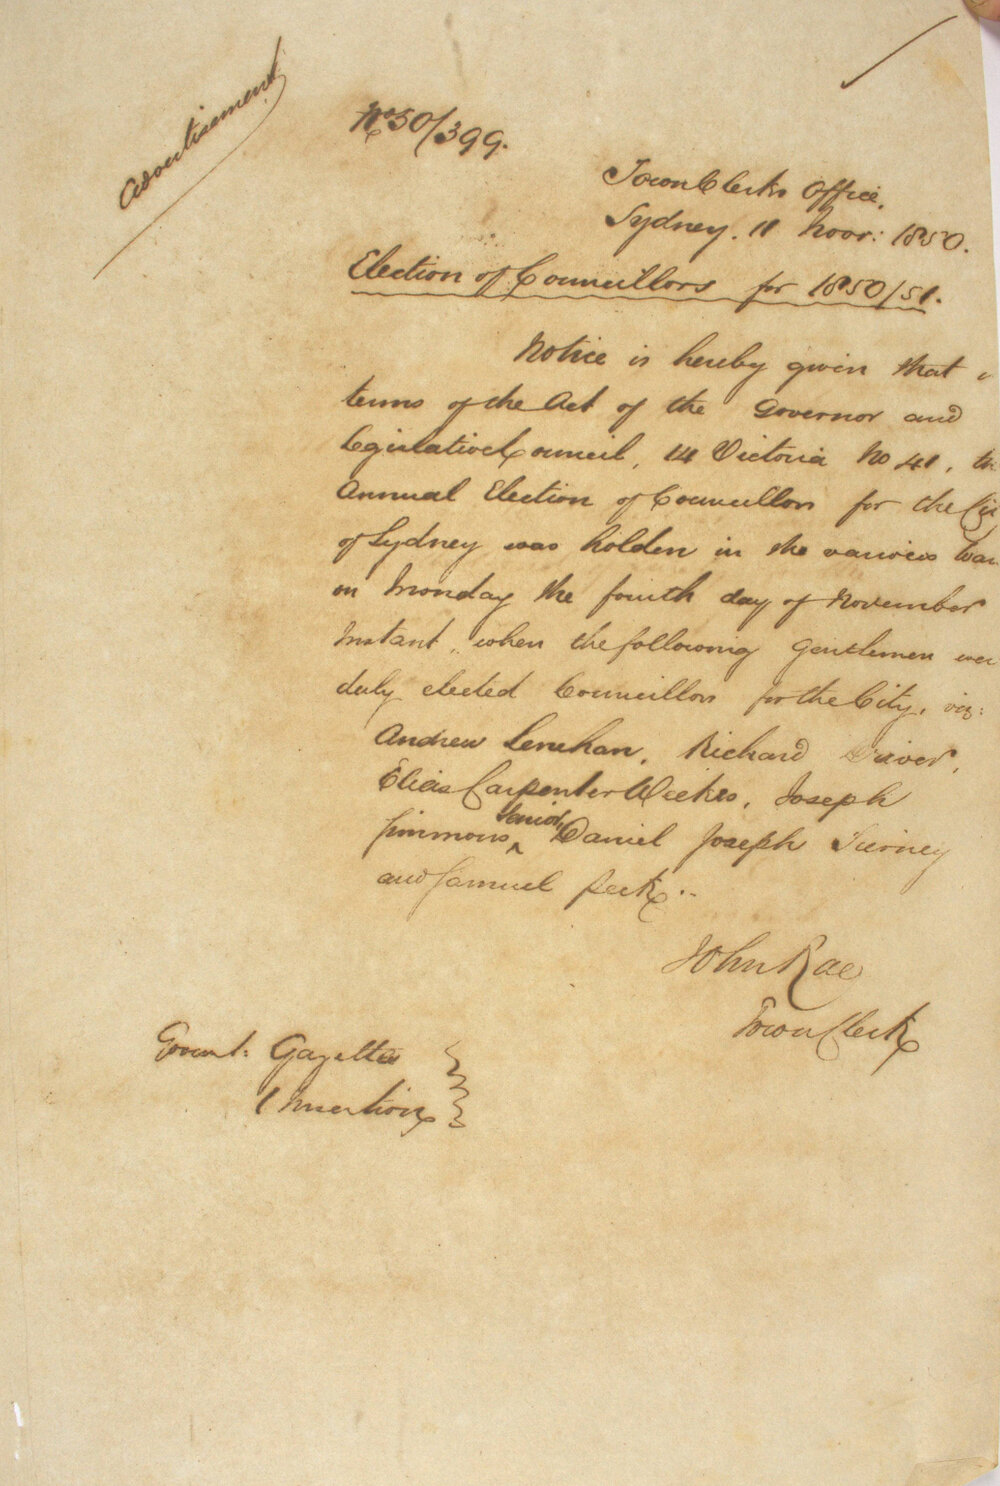 Advertisement
No 50/399.
Town Clerks Office,
Sydney. 11 Novr: 1850.
Election of Councillors for 1850/51.
Notice is hereby given that
terms of the Act of the Governor and
Legislative Council, 14 Victoria No 41, the
Annual Election of Councillors for the City
of Sydney was holden in the various War
on Monday the fourth day of November
Instant, when the following Gentlemen wer
duly elected Councillors for the City, viz:
Andrew Lenehan, Richard Driver,
Elias Carpenter Weekes, Joseph
Simmons Senior, Daniel Joseph Tierney
and Samuel Peek..
John Rae
Town Clerk
Govmt: Gazette
1 Insertion